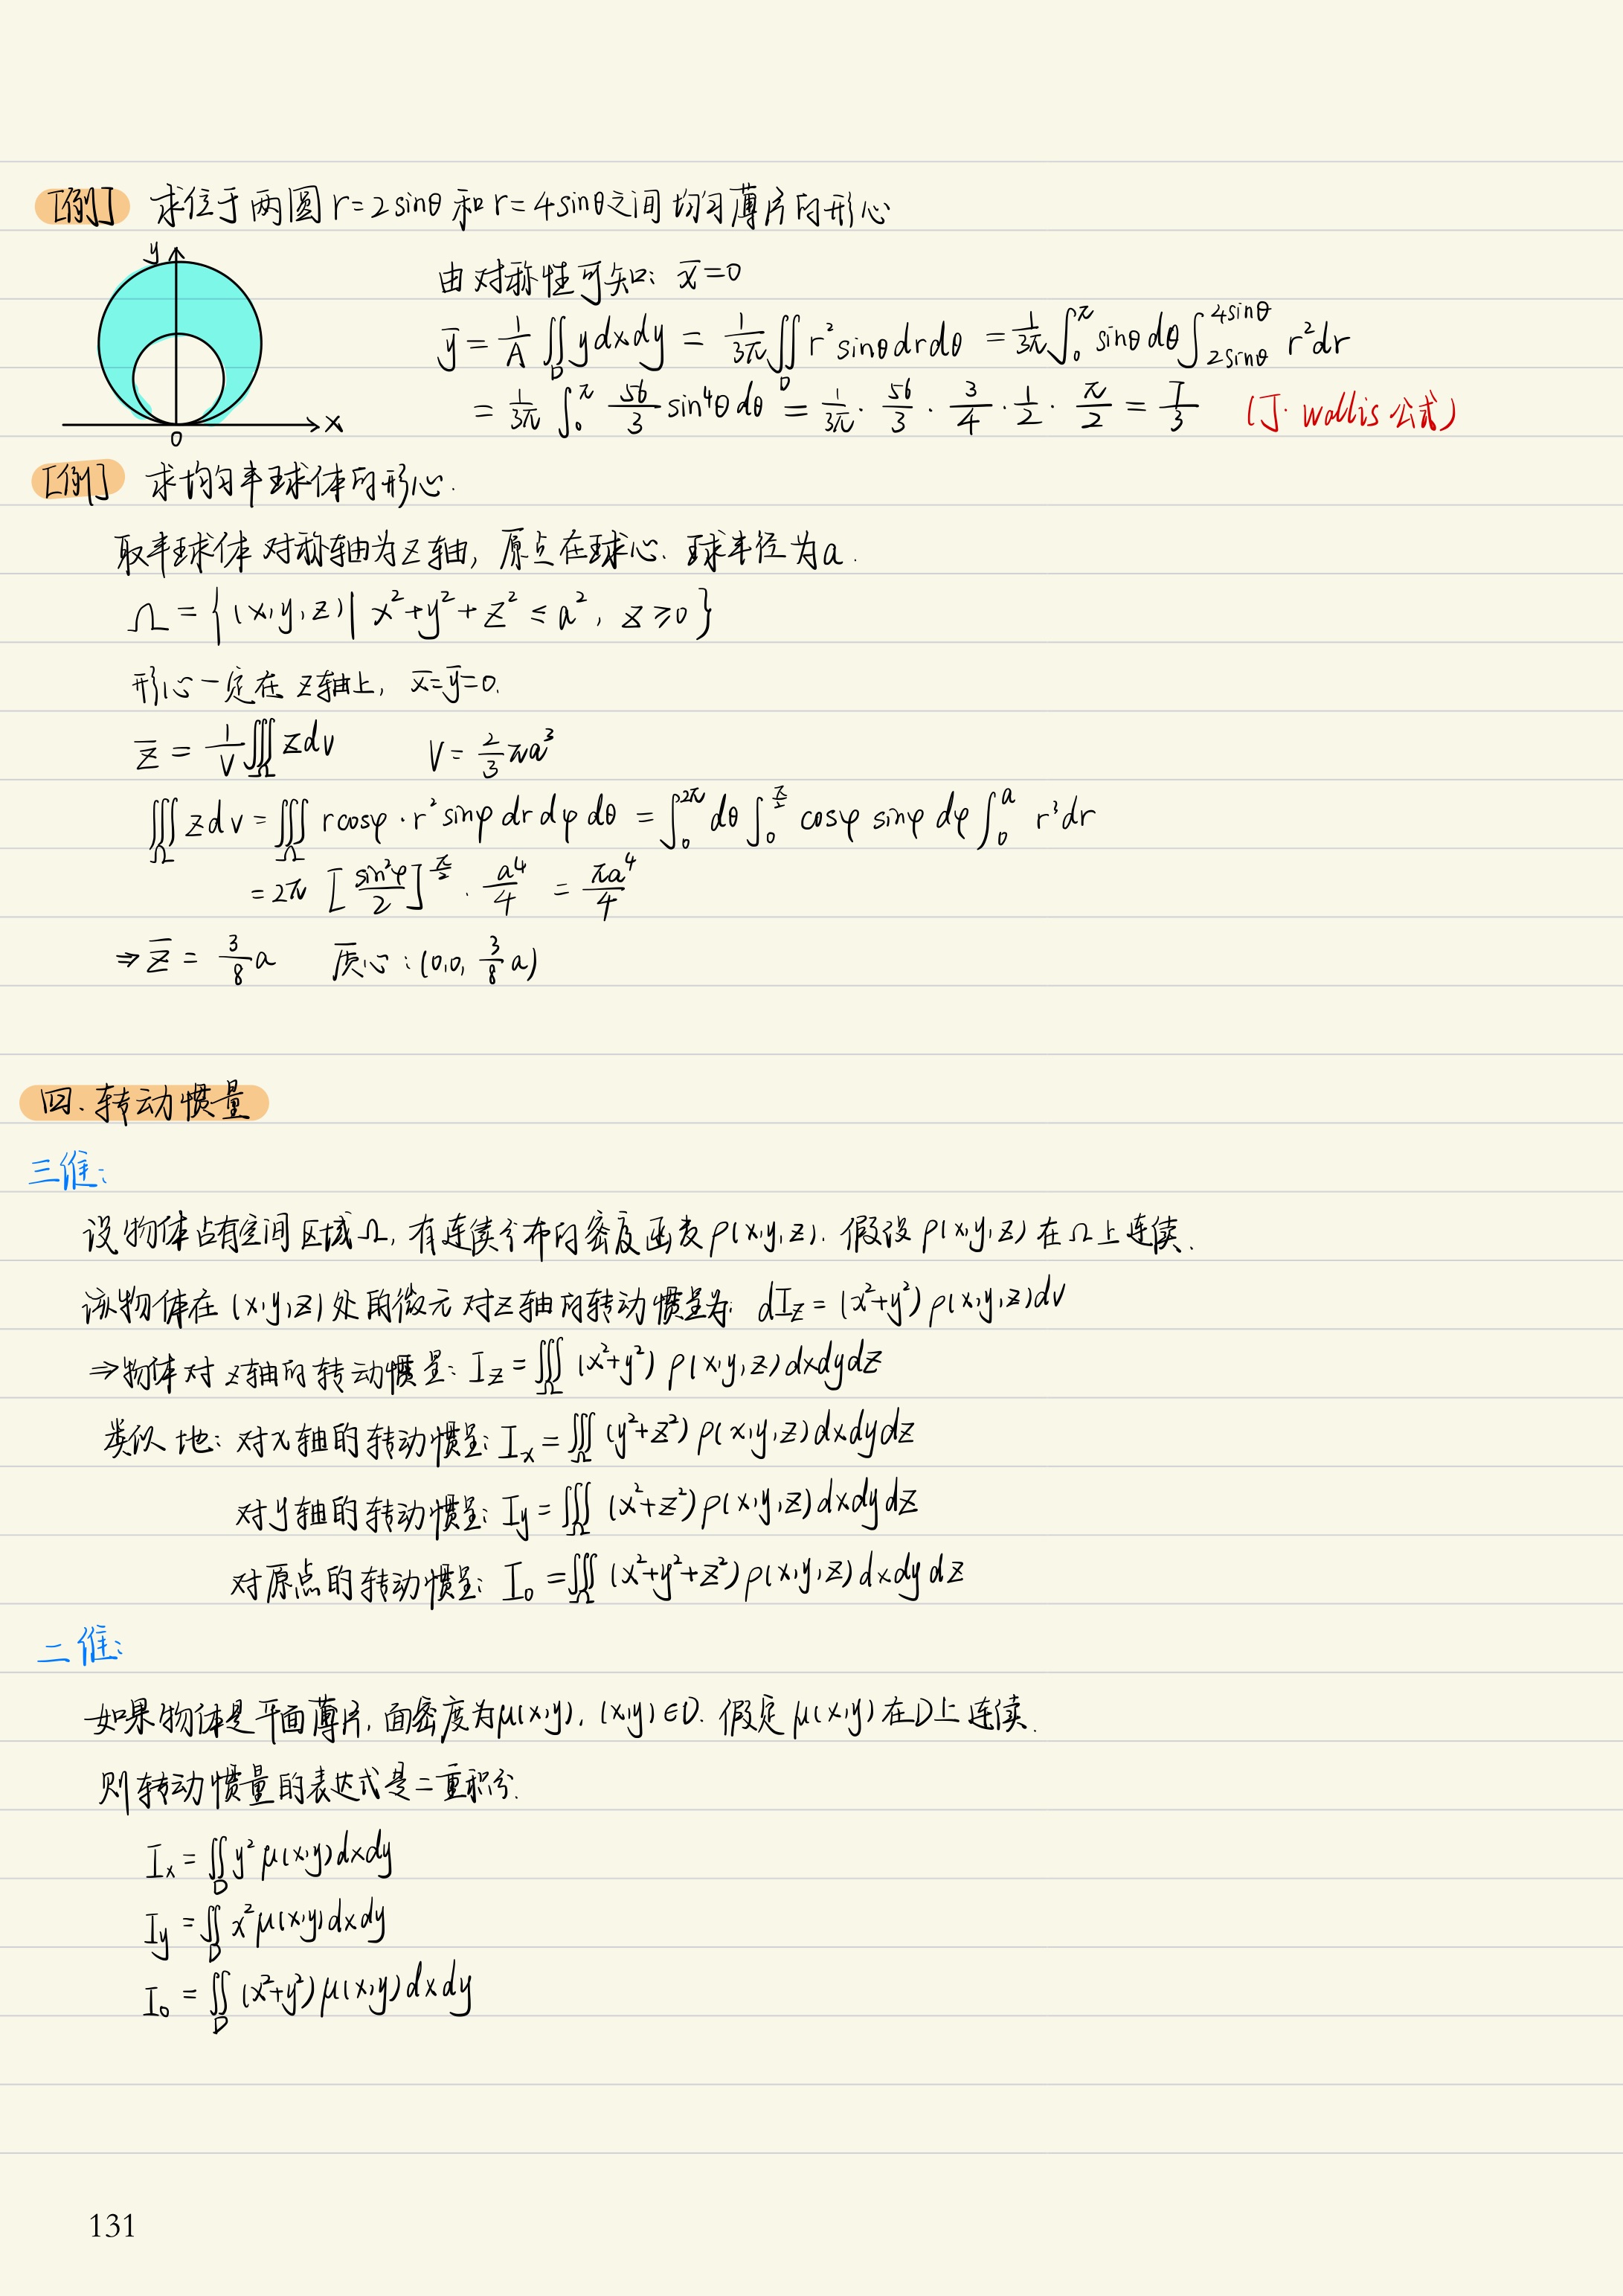 [例] 求位于两圆 r=2sinθ 和 r=4sinθ之间均匀薄片的形心
y
x
0
由对称性可知: x̄=0
ȳ = 1/A ∬_D y dxdy = 1/3π ∬_D r² sinθ dr dθ = 1/3π ∫_0^π sinθ dθ ∫_{2sinθ}^{4sinθ} r² dr
= 1/3π ∫_0^π 56/3 sin⁴θ dθ = 1/3π · 56/3 · 3/4 · 1/2 · π/2 = 7/3 (J. Wallis 公式)
[例] 求均匀半球体的形心.
取半球体对称轴为z轴, 原点在球心. 球半径为a.
Ω = {(x,y,z)| x²+y²+z² ≤ a², z≥0}
形心一定在 z轴上, x̄=ȳ=0.
z̄ = 1/V ∭_Ω z dv V = 2/3 πa³
∭_Ω z dv = ∭_Ω r cosφ · r² sinφ dr dφ dθ = ∫_0^{2π} dθ ∫_0^{π/2} cosφ sinφ dφ ∫_0^a r³ dr
= 2π [sin²φ/2]^{π/2} · a⁴/4 = πa⁴/4
⇒ z̄ = 3/8 a 质心: (0,0, 3/8 a)
四. 转动惯量
三维:
设物体占有空间区域Ω, 有连续分布的密度函数ρ(x,y,z). 假设ρ(x,y,z)在Ω上连续.
该物体在(x,y,z)处的微元对z轴的转动惯量为: dI_z = (x²+y²) ρ(x,y,z)dv
⇒物体对z轴的转动惯量: I_z = ∭_Ω (x²+y²) ρ(x,y,z) dxdydz
类似地: 对x轴的转动惯量: I_x = ∭_Ω (y²+z²) ρ(x,y,z) dxdydz
对y轴的转动惯量: I_y = ∭_Ω (x²+z²) ρ(x,y,z) dxdydz
对原点的转动惯量: I_0 = ∭_Ω (x²+y²+z²) ρ(x,y,z) dxdydz
二维:
如果物体是平面薄片, 面密度为μ(x,y), (x,y)∈D. 假定μ(x,y)在D上连续.
则转动惯量的表达式是二重积分.
I_x = ∬_D y² μ(x,y) dxdy
I_y = ∬_D x² μ(x,y) dxdy
I_0 = ∬_D (x²+y²) μ(x,y) dxdy
131